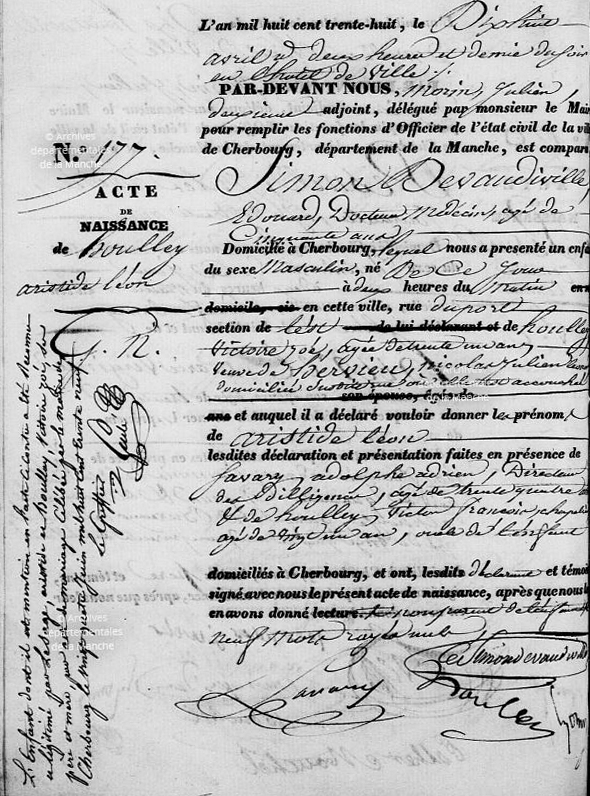 L'an mil huit cent trente-huit, le Dix huit
avril à deux heures et demie du soir
en l'hôtel de Ville
PAR-DEVANT NOUS, Morin, Julien,
deuxième adjoint, délégué par monsieur le Mai
pour remplir les fonctions d'Officier de l'état civil de la vil
de Cherbourg, département de la Manche, est compar
Simon Devaudiville,
Edouard, Docteur Médecin, agé de
Cinquante ans
Domicilié à Cherbourg, lequel nous a présenté un enfa
du sexe Masculin, né Ce Jour
à deux heures du Matin en s
domicile, sis en cette ville, rue du port
section de l'est de lui déclarant et de houlley
Victoire zoé, agée de trente un ans,
veuve de hervieu, Nicolas Julien
domiciliée rue ou elle est accouchée
son épouse, âgée
ans et auquel il a déclaré vouloir donner les prénoms
de aristide léon
lesdites déclaration et présentation faites en présence de
Savary, adolphe adrien, Directeur
des Diligences, agé de trente quatre a
& de houlley, Victor françois, chapelier
agé de vingt un ans, oncle de l'enfant
domiciliés à Cherbourg, et ont, lesdits déclarant et témoi
signé avec nous le présent acte de naissance, après que nous l
en avons donné lecture.
neuf mots rayés nuls
Ed Simondevaudiville
Savary
houlley
N.° 177.
ACTE
DE
NAISSANCE
de houlley
aristide léon
g. N.
L'Enfant dont il est mention en l'acte ci contre a été reconnu
et légitimé par Lesage, aristide et Boulley, Victoire zoé, ses
père et mère, par acte de mariage Célébré par le maire de
Cherbourg le vingt sept juin mil huit cent trente neuf.
Le Greffier
© Archives
départementales
de la Manche
© Archives
départementales
de la Manche
© Archives
départementales
de la Manche